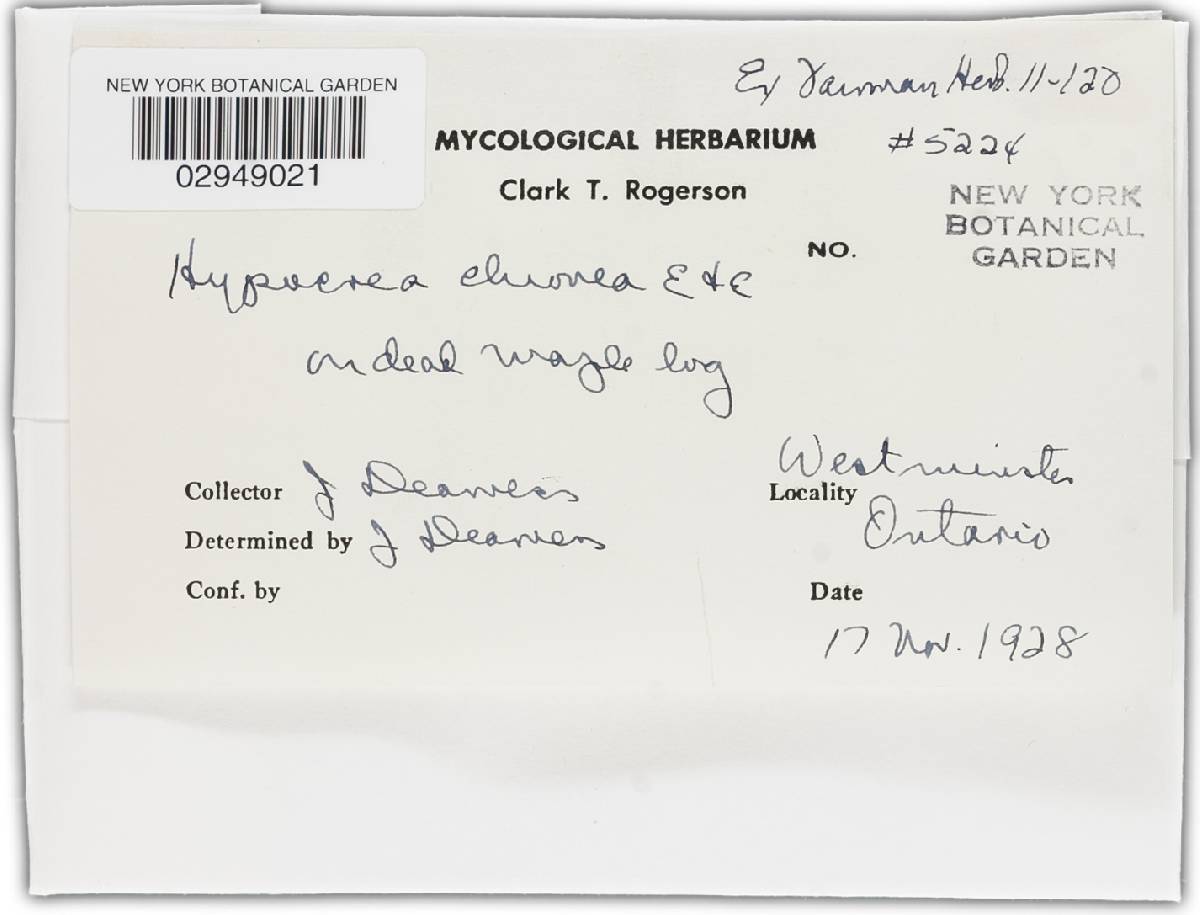 NEW YORK BOTANICAL GARDEN
02949021
Ex Fairman Herb. 11-120
MYCOLOGICAL HERBARIUM
#5224
Clark T. Rogerson
NEW YORK
BOTANICAL
GARDEN
NO.
Hypocrea chionea E & E
on dead maple log
Collector J Dearness
Westminster
Locality
Ontario
Determined by J Dearness
Conf. by
Date
17 Nov. 1928